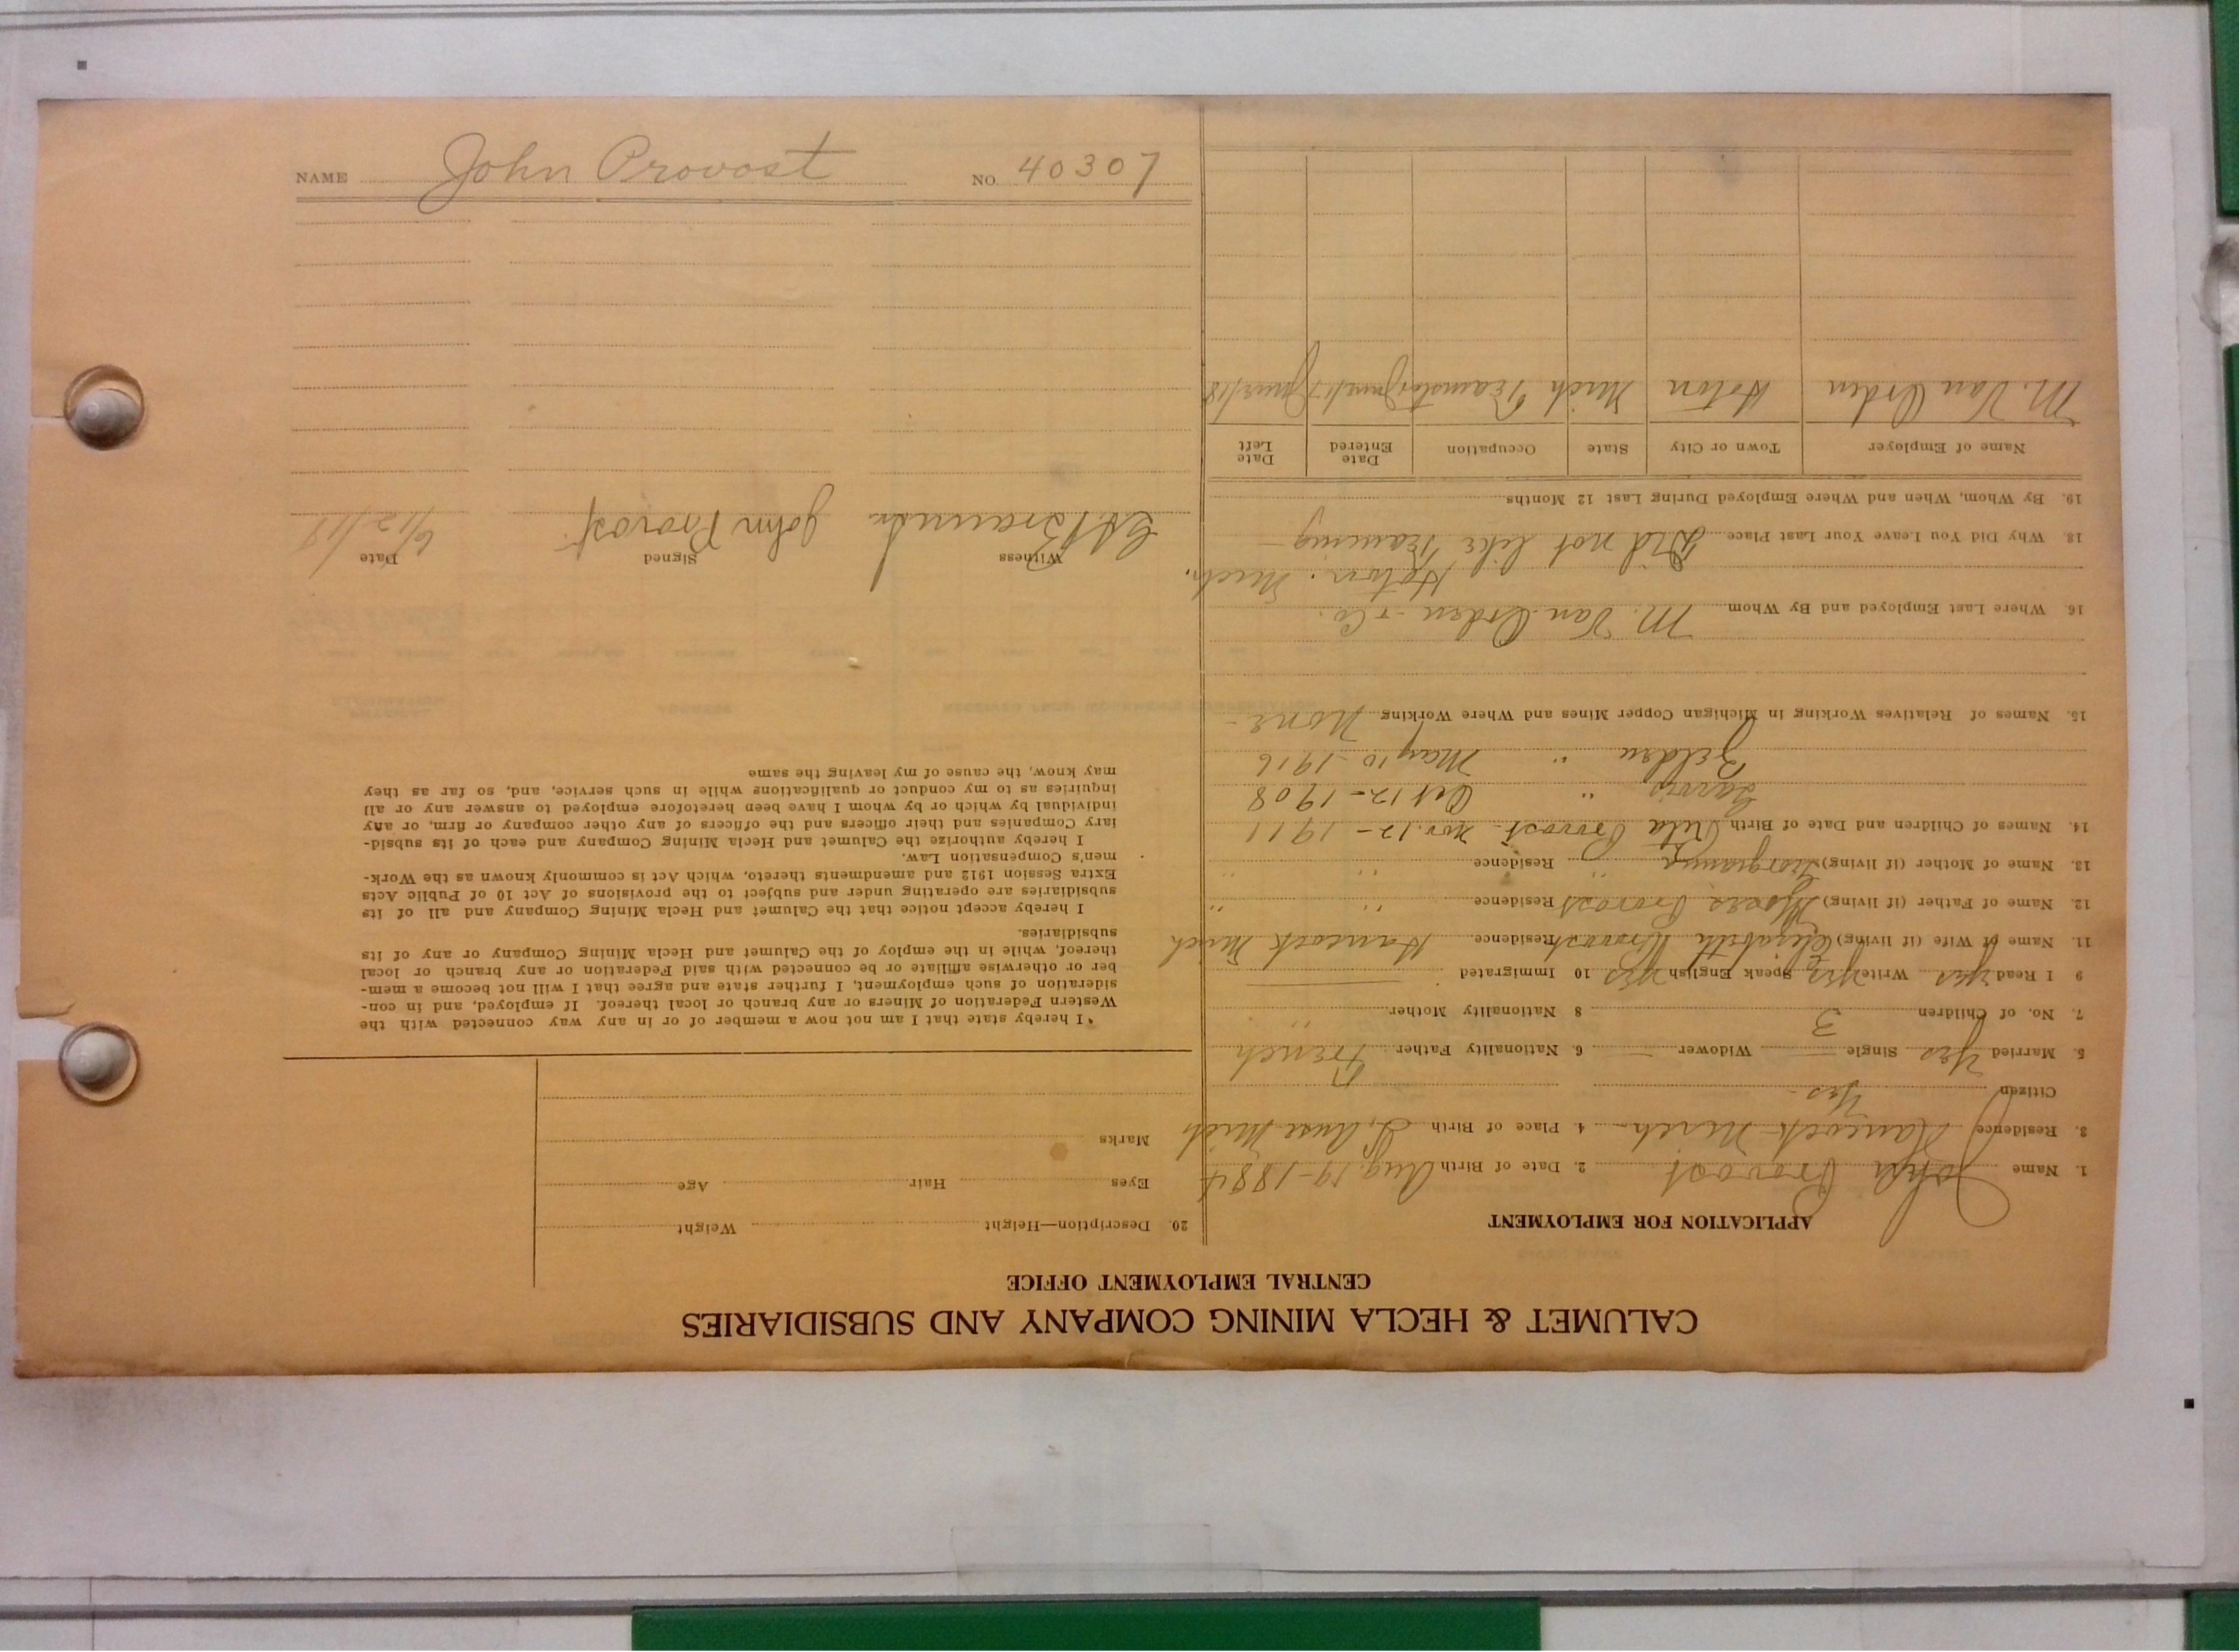 CALUMET & HECLA MINING COMPANY AND SUBSIDIARIES
CENTRAL EMPLOYMENT OFFICE
APPLICATION FOR EMPLOYMENT
1. Name John Provost 2. Date of Birth Aug. 19-1884
3. Residence Hancock Mich. 4. Place of Birth L'Anse Mich
Citizen Yes
5. Married Yes Single — Widower — 6. Nationality Father French
7. No. of Children 3 8 Nationality Mother "
9 I Read Yes Write Yes Speak English Yes 10 Immigrated
11. Name of Wife (if living) Elizabeth Provost Residence Hancock Mich
12. Name of Father (if living) Moses Provost Residence " "
13. Name of Mother (if living) " Residence " "
14. Names of Children and Date of Birth Reta Provost - Nov. 12 - 1911
" Oct 12 - 1908
" May 10 - 1916
15. Names of Relatives Working in Michigan Copper Mines and Where Working None -
16. Where Last Employed and By Whom M. Van Orden & Co.
Hoton. Mich.
18. Why Did You Leave Your Last Place Did not like Teaming -
19. By Whom, When and Where Employed During Last 12 Months
Name of Employer Town or City State Occupation Date Entered Date Left
M. Van Orden Hoton Mich Teamster June/17 June/18
20. Description—Height Weight
Eyes Hair Age
Marks
"I hereby state that I am not now a member of or in any way connected with the
Western Federation of Miners or any branch or local thereof. If employed, and in con-
sideration of such employment, I further state and agree that I will not become a mem-
ber or otherwise affiliate or be connected with said Federation or any branch or local
thereof, while in the employ of the Calumet and Hecla Mining Company or any of its
subsidiaries.
I hereby accept notice that the Calumet and Hecla Mining Company and all of its
subsidiaries are operating under and subject to the provisions of Act 10 of Public Acts
Extra Session 1912 and amendments thereto, which Act is commonly known as the Work-
men's Compensation Law.
I hereby authorize the Calumet and Hecla Mining Company and each of its subsid-
iary Companies and their officers and the officers of any other company or firm, or any
individual by which or by whom I have been heretofore employed to answer any or all
inquiries as to my conduct or qualifications while in such service, and, so far as they
may know, the cause of my leaving the same
Witness Signed Date
John Provost 6/12/18
NAME John Provost NO. 40307